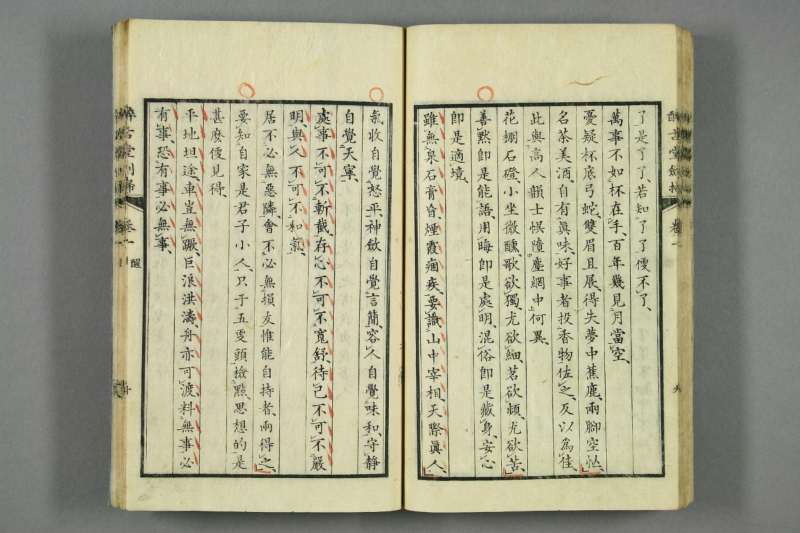 了是了了、若知了了便不了、
萬事不如杯在手、百年幾見月當空、
憂疑杯底弓蛇雙眉且展得失夢中蕉鹿、兩腳空忙、
名茶美酒自有眞味、好事者投香物佐之、反以為佳
此與高人韻士悞墮塵網中何異、
花棚石磴小坐微醺歌欲獨尤欲細茗欲頻尤欲苦、
善黙卽是能語、用晦卽是處明、混俗卽是藏身、安心
卽是適境、
雖無泉石膏肓煙霞痼疾、要識山中宰相天際眞人、
氣收自覺怒平、神斂自覺言簡、容人自覺味和、守靜
自覺天寧、
處事不可不斬截、存心不可不寬舒、待己不可不嚴
明、與人不可不和氣、
居不必無惡隣會不必無損友惟能自持者、兩得之、
要知自家是君子小人、只于五更頭檢㸃思想的是
甚麽便見得、
平地坦途車豈無蹶、巨浪洪濤舟亦可渡、料無事必
有事、恐有事必無事、
卷一
醒